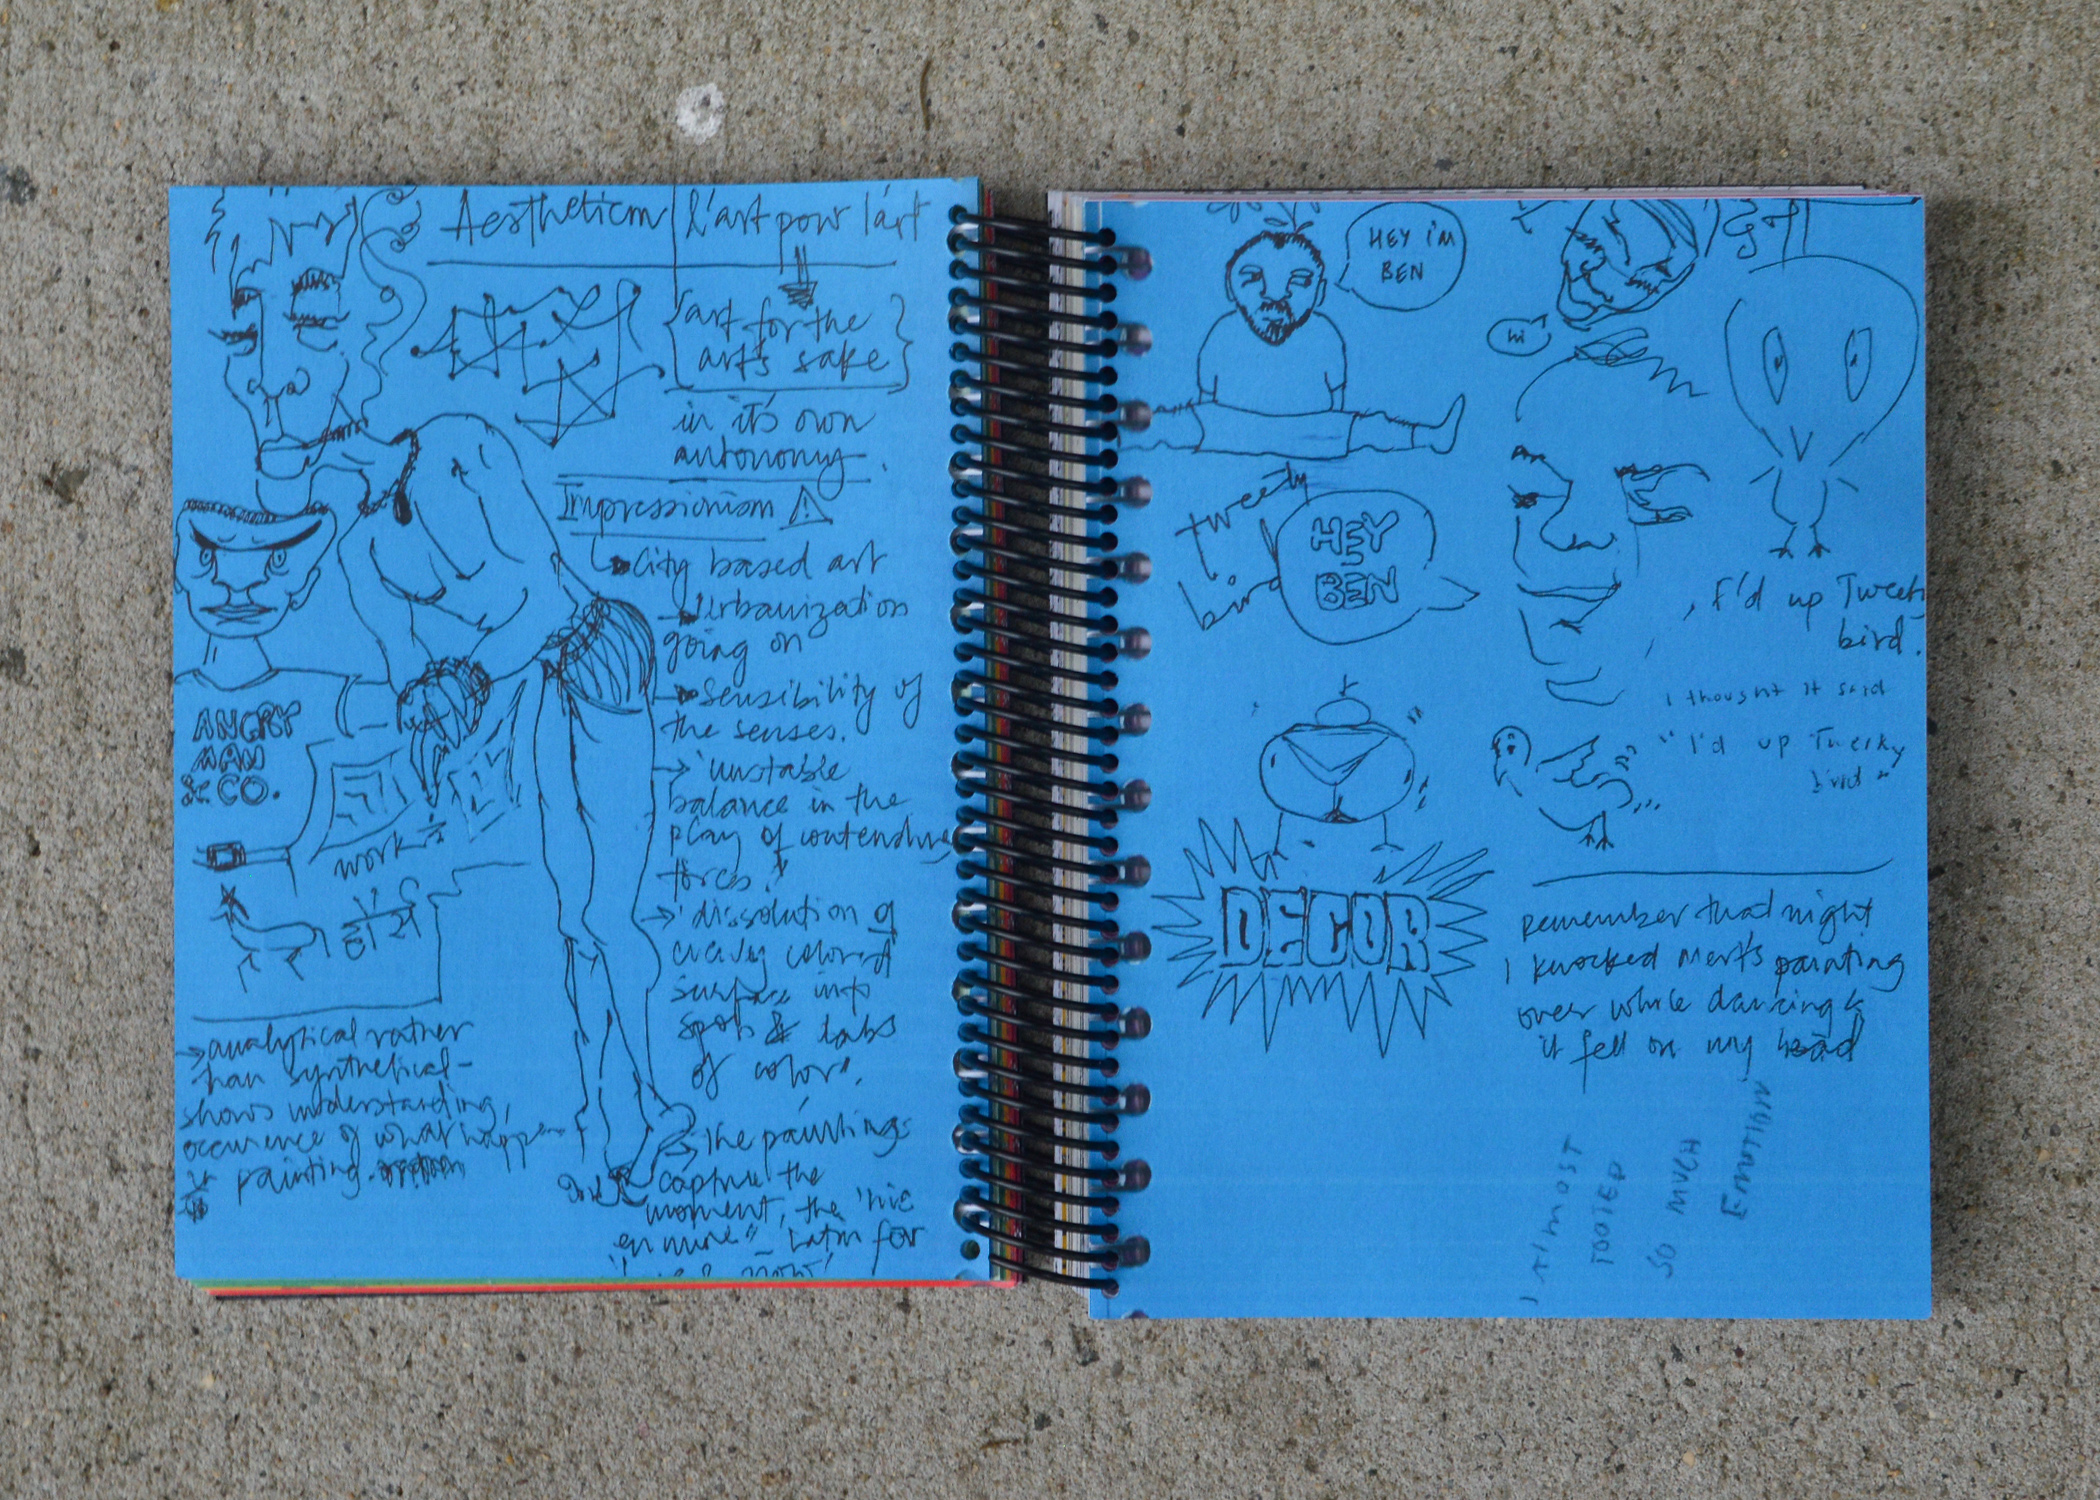 Aestheticm | l'art pour l'art
{art for the
art's sake}
in it's own
autonomy.
Impressionism
City based art
Urbanization
going on
Sensibility of
the senses.
→ 'unstable
balance in the
play of contending
forces.'
→ 'dissolution of
evenly colored
surface into
spots & dabs
of color'.
→ The paintings
capture the
moment, the 'hic
en nunc" - Latin for
ANGRY
MAN
& CO.
work
हॉर्स
→ analytical rather
than synthetical -
shows understanding,
occurence of what happen
in painting.
HEY I'M
BEN
hi
tweety
bird
HEY
BEN
, F'd up Tweety
bird.
I thought it said
"I'd up Twerky
bird"
DECOR
Remember that night
I knocked mert's painting
over while dancing &
it fell on my head
I ALMOST
TOOTED
SO MUCH
EMOTION